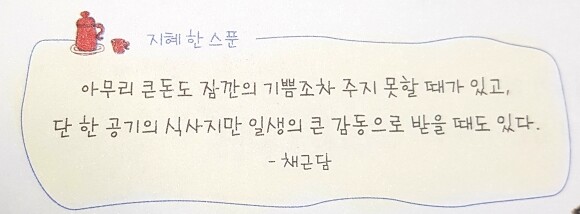 지혜 한 스푼
아무리 큰돈도 잠깐의 기쁨조차 주지 못할 때가 있고,
단 한 공기의 식사지만 일생의 큰 감동으로 받을 때도 있다.
- 채근담